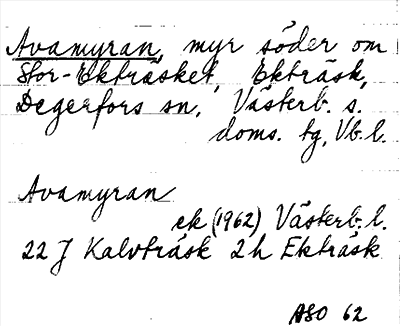 Avamyran, myr söder om
Stor-Ekträsket, Ekträsk,
Degerfors sn, Västerb. s.
doms. tg, Vb. l.
Avamyran
ek (1962) Västerb. l.
22 J Kalvträsk 2h Ekträsk
ASO 62